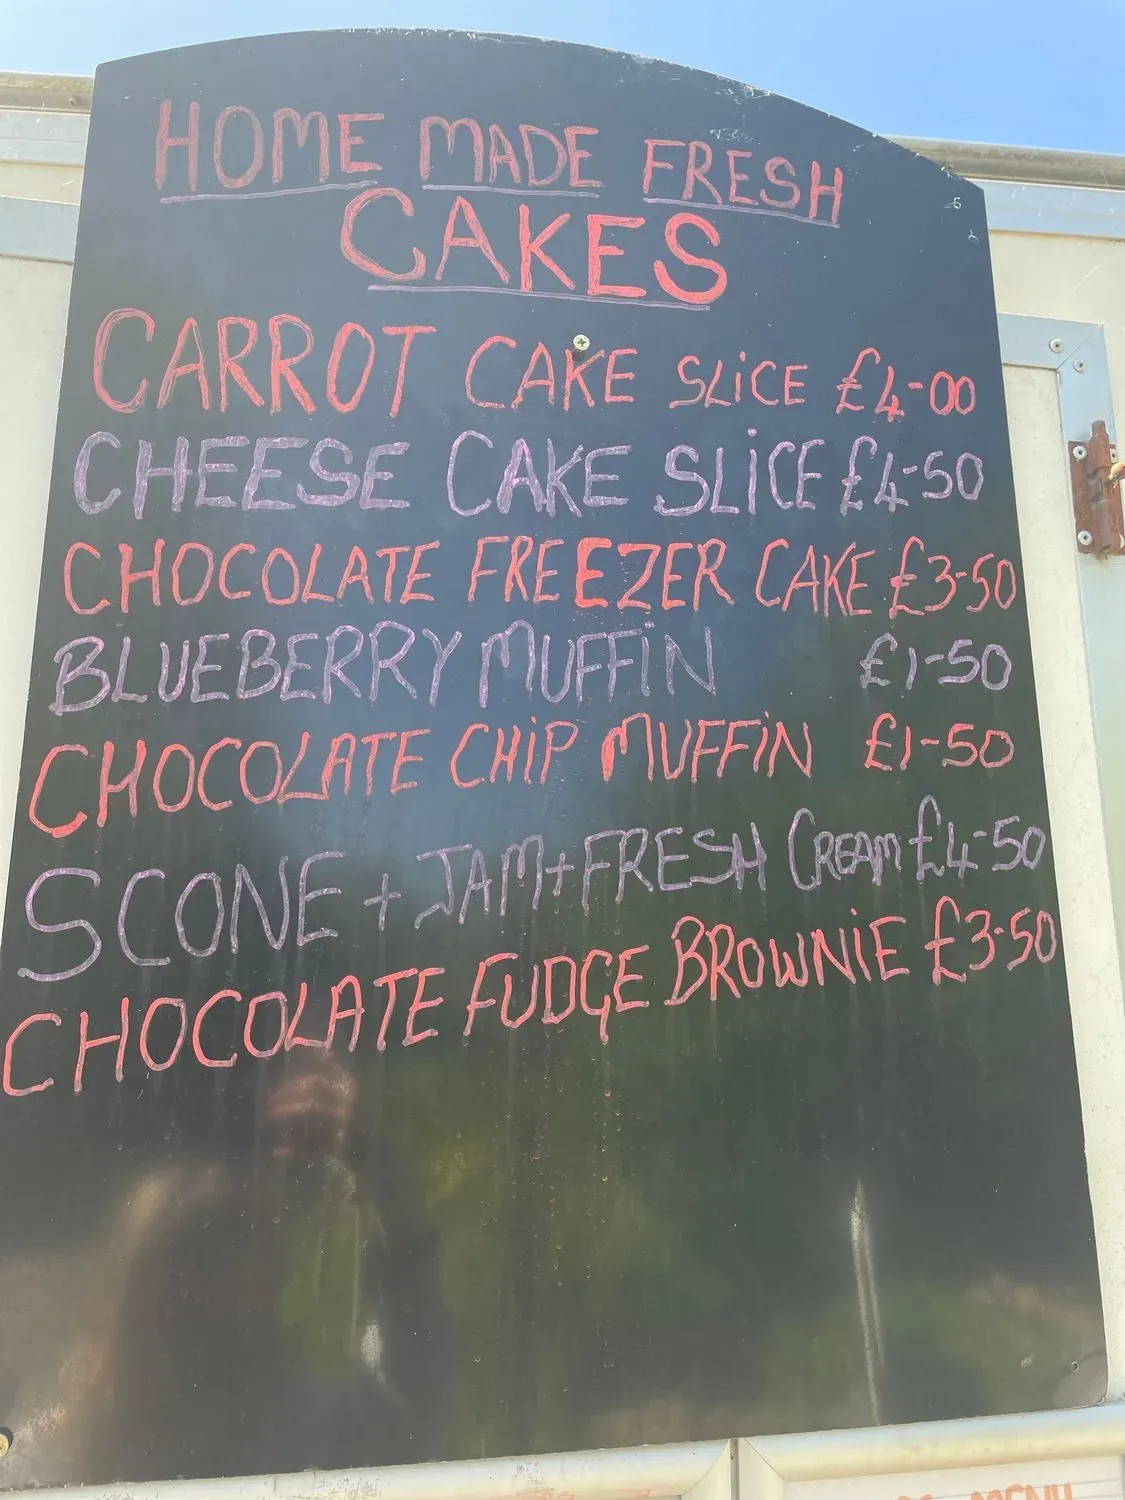 HOME MADE FRESH
CAKES
CARROT CAKE SLiCE £4-00
CHEESE CAKE SLiCE £4-50
CHOCOLATE FREEZER CAKE £3-50
BLUEBERRY MUFFiN £1-50
CHOCOLATE CHiP MUFFiN £1-50
SCONE + JAM + FRESH CREAM £4-50
CHOCOLATE FUDGE BROWNiE £3-50
MENU